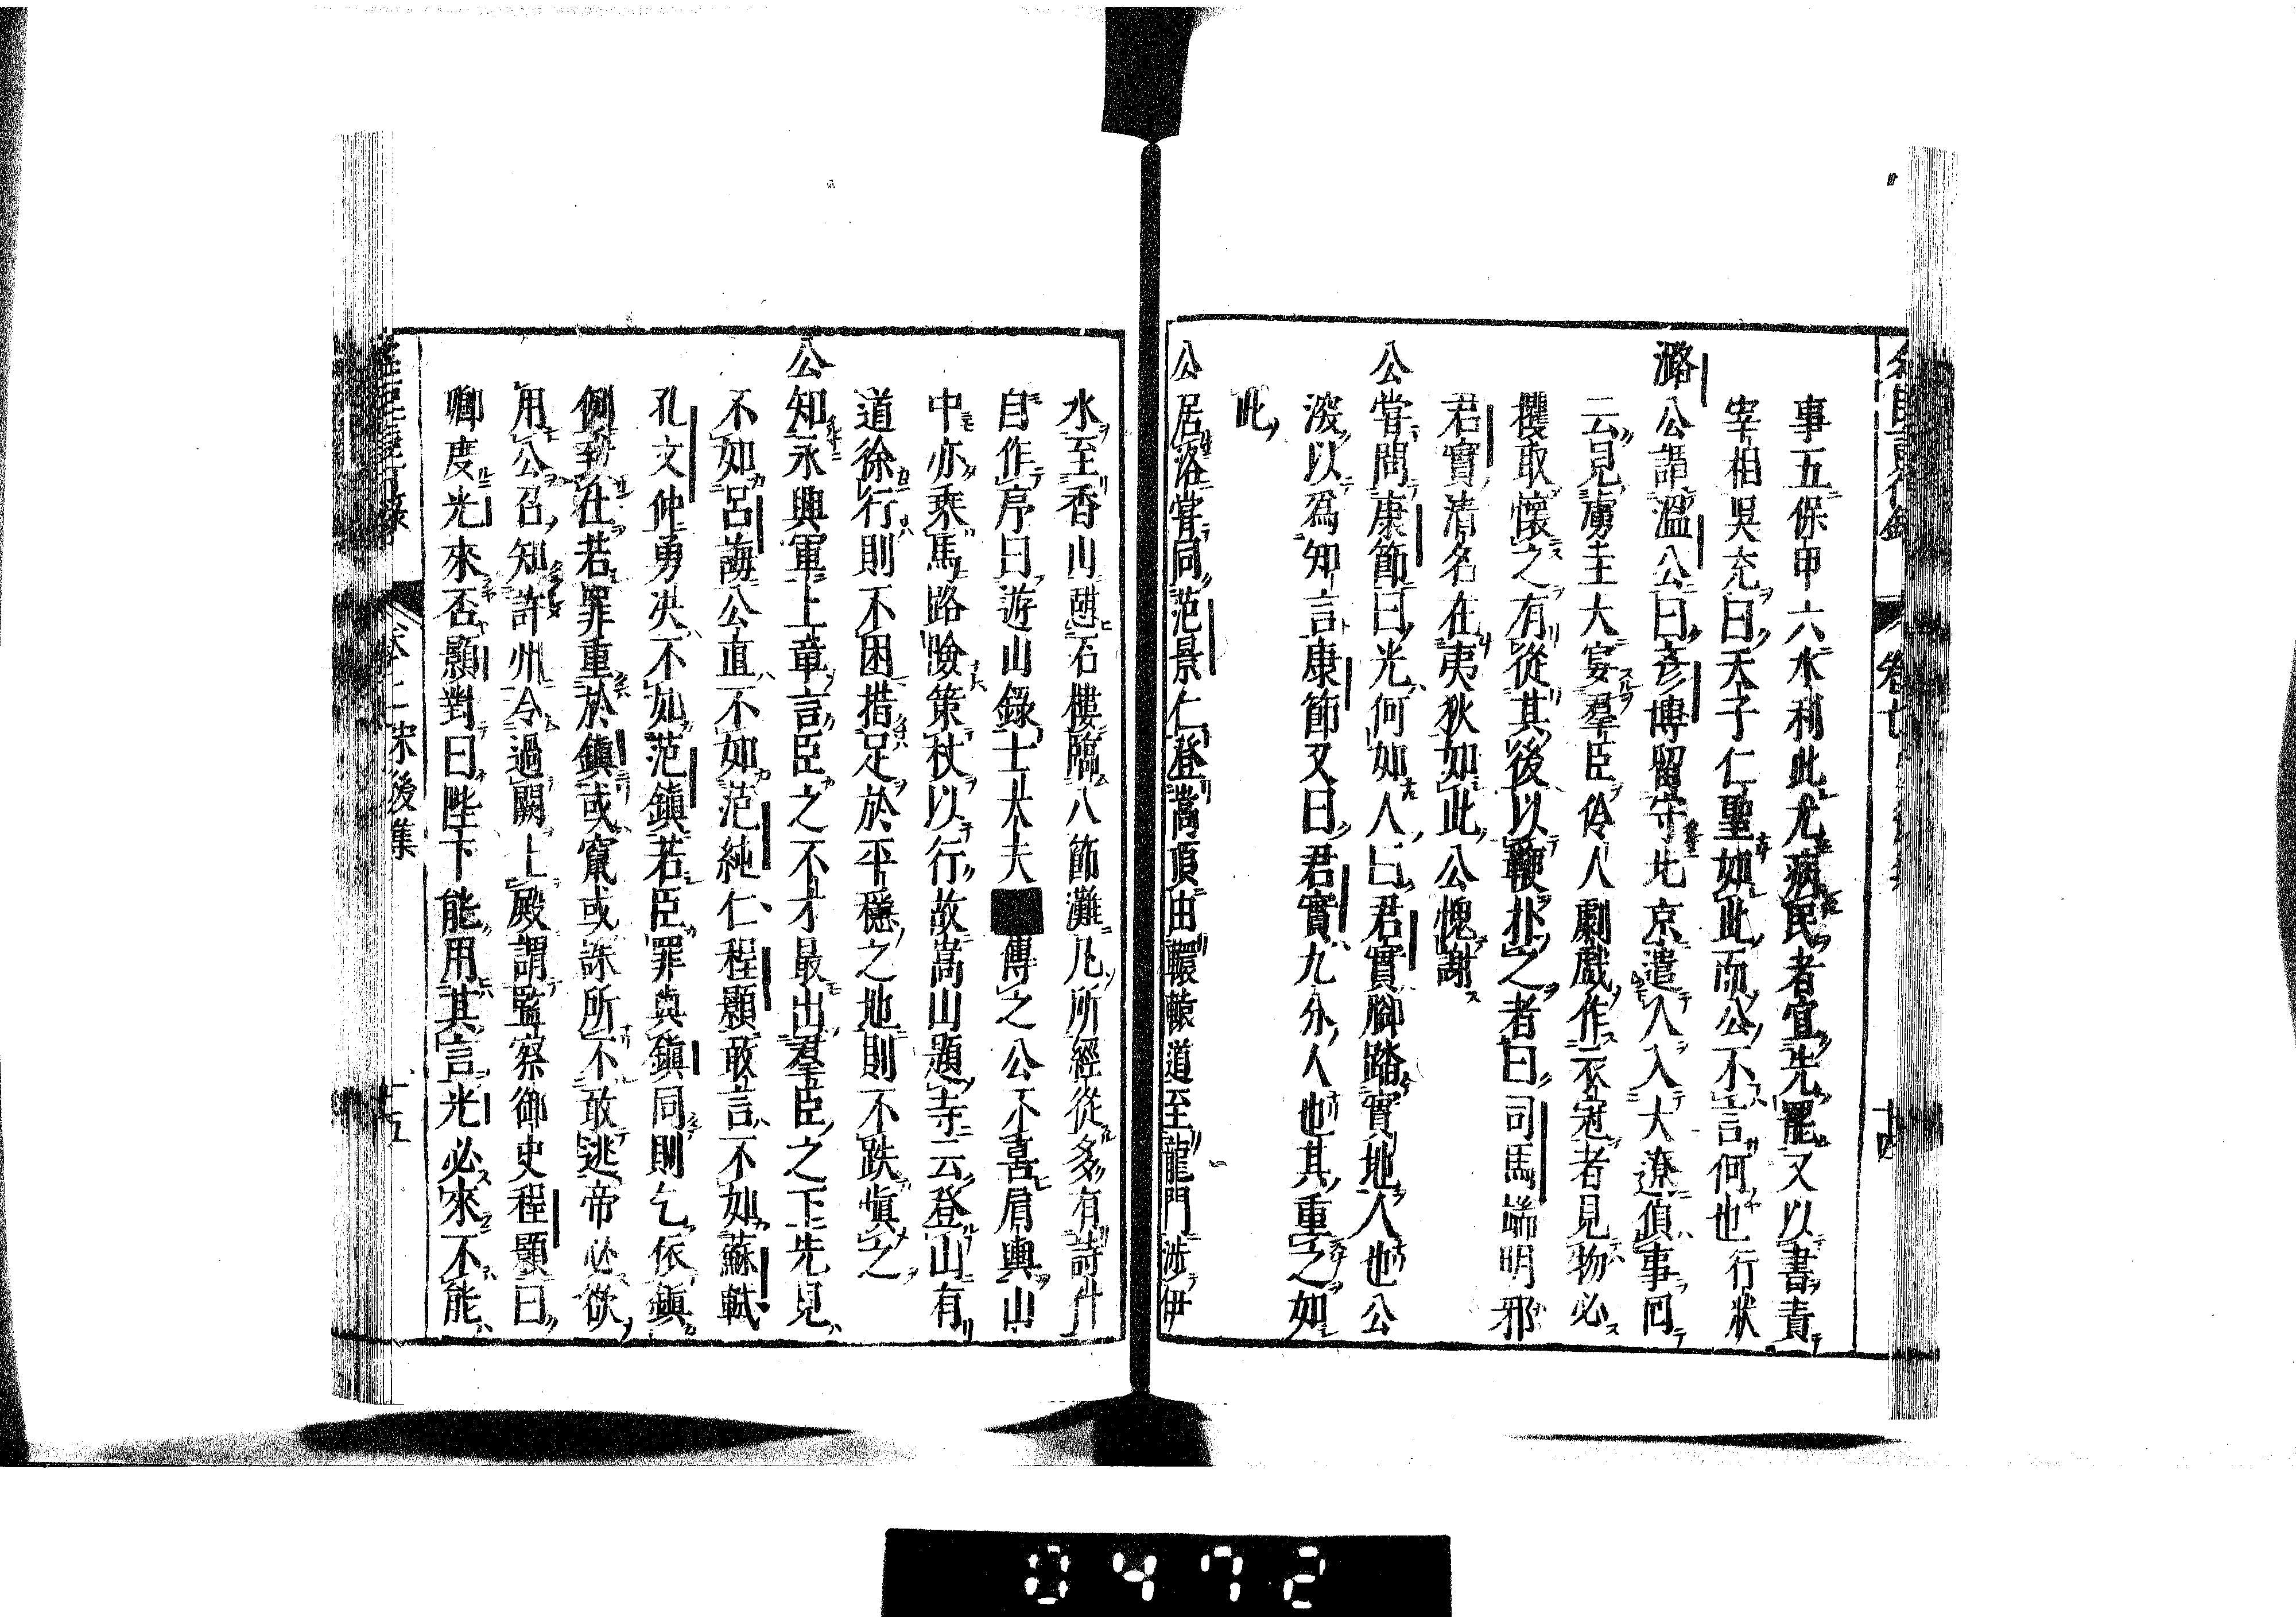 事五保甲六水利此尤病民者宜先罷又以書責
宰相吳充曰天子仁聖如此而公不言何也行狀
潞公謂溫公曰彥博留守北京遣人入大遼偵事回
云見虜主大宴羣臣伶人劇戲作衣冠者見物必
攫取懷之有從其後以鞭扑之者曰司馬端明邪
君實清名在夷狄如此公愧謝
公嘗問康節曰光何如人曰君實腳踏實地人也公
深以爲知言康節又曰君實九分人也其重之如
此
公居洛嘗同范景仁登嵩頂由轘轅道至龍門涉伊
水至香山憩石樓臨八節灘凡所經從多有詩什
自作序曰遊山錄士大夫傳之公不喜肩輿山
中亦乘馬路險策杖以行故嵩山題寺云登山有
道徐行則不困措足於平穩之地則不跌愼之
公知永興軍上章言臣之不才最出羣臣之下先見
不如呂誨公直不如范純仁程顥敢言不如蘇軾
孔文仲勇決不如范鎭若臣罪與鎭同則乞依鎭
例致仕若罪重於鎭或竄或誅所不敢逃帝必欲
用公召知許州令過闕上殿謂監察御史程顥曰
卿度光來否顥對曰陛下能用其言光必來不能
宋後集
十五
0472